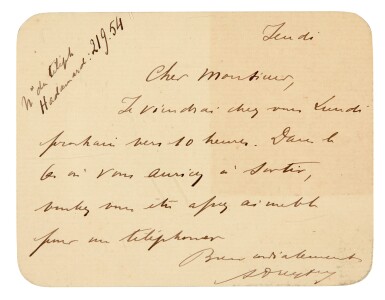 No du téléph
Hadamard : 219.54
Jeudi
Cher Monsieur,
Je viendrai chez vous Lundi
prochain vers 10 heures. Dans le
cas où vous auriez à sortir,
voulez vous être assez aimable
pour me téléphoner
Bien cordialement
ADreyfus